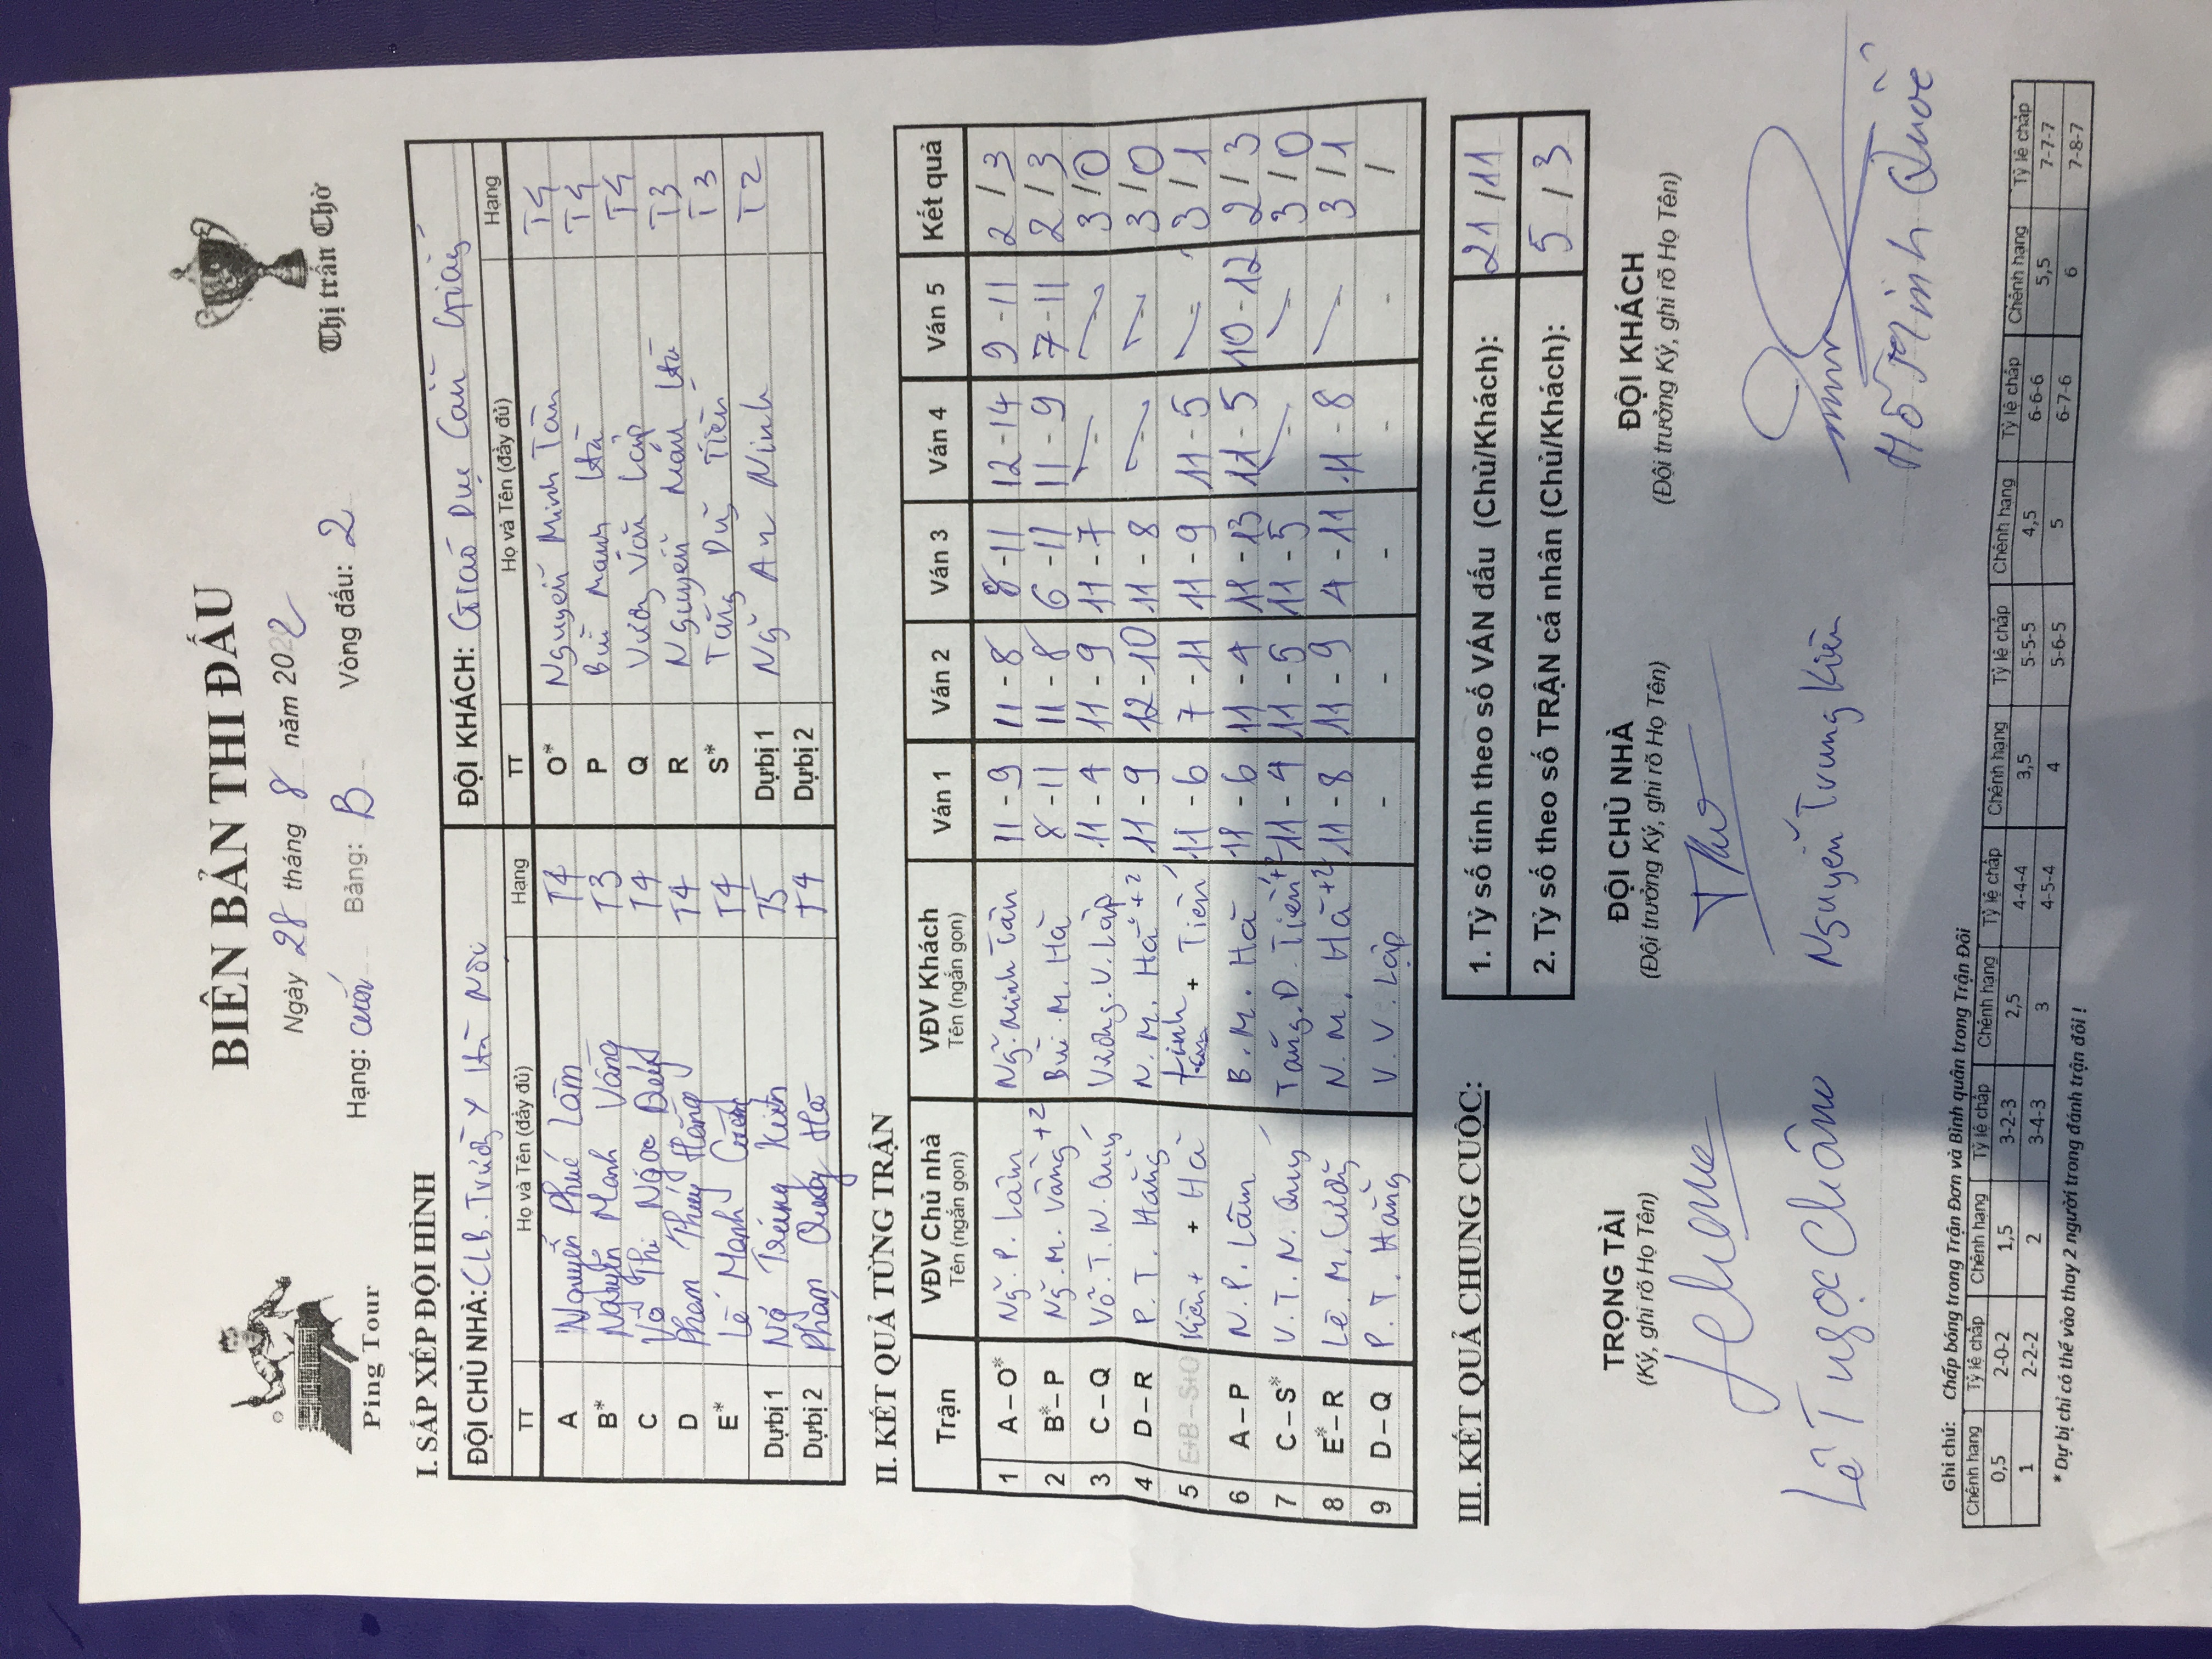 BIÊN BẢN THI ĐẤU
Ping Tour
Thị trấn Chờ
Ngày 28 tháng 8 năm 2022
Hạng: cuối Bảng: B Vòng đấu: 2
I. SẮP XẾP ĐỘI HÌNH
ĐỘI CHỦ NHÀ: CLB. Trường Y Hà Nội ĐỘI KHÁCH: Giáo Dục Cầu Giấy
TT Họ và Tên (đầy đủ) Hạng TT Họ và Tên (đầy đủ) Hạng
A Nguyễn Phúc Lâm T4 O* Nguyễn Minh Tân T4
B* Nguyễn Mạnh T3 P Bùi Mạnh Hà T4
C Võ Thị Ngọc T4 Q Vương Văn Lập T4
D Phạm Thúy Hằng T4 R Nguyễn Mạnh Hà T3
E* Lê Mạnh Cường T4 S* Tăng Dũng Tiến T3
Dự bị 1 Ng Trung Kiên T5 Dự bị 1 Ng An Ninh T2
Dự bị 2 Phạm Quang Hà T4 Dự bị 2
II. KẾT QUẢ TỪNG TRẬN
Trận VĐV Chủ nhà Tên (ngắn gọn) VĐV Khách Tên (ngắn gọn) Ván 1 Ván 2 Ván 3 Ván 4 Ván 5 Kết quả
1 A – O* Ng. P. Lâm Ng. Minh Tân 11 - 9 11 - 8 8 - 11 12 - 14 9 - 11 2 / 3
2 B* – P Ng. M. Vàng +2 Bùi. M. Hà 8 - 11 11 - 8 6 - 11 11 - 9 7 - 11 2 / 3
3 C – Q Võ. T. N. Quý Vương. V. Lập 11 - 4 11 - 9 11 - 7 - - 3 / 0
4 D – R P. T. Hằng N. M. Hà +2 11 - 9 12 - 10 11 - 8 - - 3 / 0
5 E+B – S+O Kiên + Hà + Tiến 11 - 6 7 - 11 11 - 9 11 - 5 - 3 / 1
6 A – P N. P. Lâm B. M. Hà 11 - 6 11 - 4 11 - 13 11 - 5 10 - 12 2 / 3
7 C – S* V. T. N. Quý Tăng. D. Tiến +2 11 - 4 11 - 5 11 - 5 - - 3 / 0
8 E* – R Lê. M. Cường N. M. Hà +2 11 - 8 11 - 9 4 - 11 11 - 8 - 3 / 1
9 D – Q P. T. Hằng V. V. Lập - - - - - /
III. KẾT QUẢ CHUNG CUỘC:
1. Tỷ số tính theo số VÁN đấu (Chủ/Khách): 21 / 11
2. Tỷ số theo số TRẬN cá nhân (Chủ/Khách): 5 / 3
TRỌNG TÀI ĐỘI CHỦ NHÀ ĐỘI KHÁCH
(Ký, ghi rõ Họ Tên) (Đội trưởng Ký, ghi rõ Họ Tên) (Đội trưởng Ký, ghi rõ Họ Tên)
Lê Ngọc Châm Nguyễn Trung Kiên Hồ Minh Quốc
Ghi chú: Chấp bóng trong Trận Đơn và Bình quân trong Trận Đôi
Chênh hạng Tỷ lệ chấp Chênh hạng Tỷ lệ chấp Chênh hạng Tỷ lệ chấp Chênh hạng Tỷ lệ chấp Chênh hạng Tỷ lệ chấp Chênh hạng Tỷ lệ chấp
0,5 2-0-2 1,5 3-2-3 2,5 4-4-4 3,5 5-5-5 4,5 6-6-6 5,5 7-7-7
1 2-2-2 2 3-4-3 3 4-5-4 4 5-6-5 5 6-7-6 6 7-8-7
* Dự bị chỉ có thể vào thay 2 người trong đánh trận đôi !